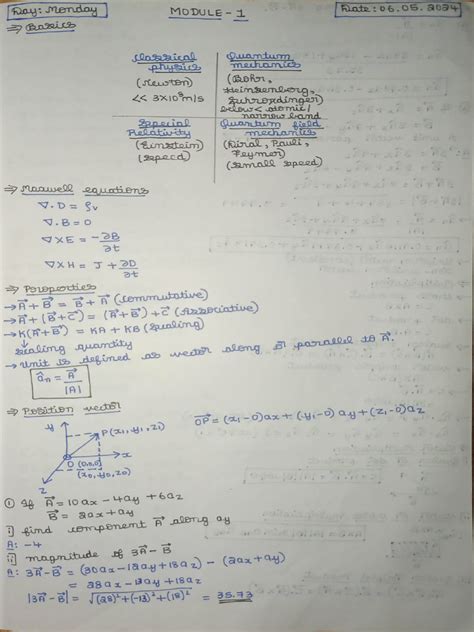 Day: Monday
MODULE - 1
Date: 06.05.2024
⇒ Basics
Classical physics
(Newton)
<< 3×10⁸m/s
Quantum mechanics
(Bohr, Heinsenberg, Schrordinger)
below < atomic/ narrow band
Special Relativity
(Einstein)
(Speed)
Quantum field mechanics
Pauli,
(Small speed)
⇒ Maxwell equations
∇.D = ρv
∇.B = 0
∇×E = -∂B/∂t
∇×H = J + ∂D/∂t
⇒ Properties
→ A⃗ + B⃗ = B⃗ + A⃗ (Commutative)
→ A⃗ + (B⃗ + C⃗) = (A⃗ + B⃗) + C⃗ (Associative)
→ K(A⃗ + B⃗) = KA + KB (Scaling)
scaling quantity
→ Unit is defined as vector along or parallel to A⃗.
â_n = A⃗/|A|
⇒ Position vector
y
P(x₁, y₁, z₁)
O (0,0,0)
(x₀, y₀, z₀)
x
z
OP⃗ = (x₁-0)ax + (y₁-0)ay + (z₁-0)az
① If A⃗ = 10ax - 4ay + 6az
B⃗ = 2ax + ay
i] find component A⃗ along ay
A: -4
ii] magnitude of 3A⃗ - B⃗
A: 3A⃗ - B⃗ = (30ax - 12ay + 18az) - (2ax + ay)
= 28ax - 13ay + 18az
|3A⃗ - B⃗| = √(28)² + (-13)² + (18)² = 35.73